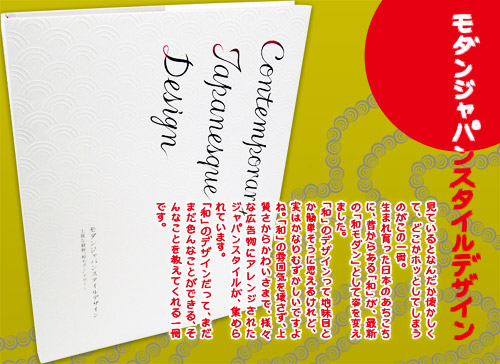 モダンジャパンスタイルデザイン
見ているとなんだか懐かしく
て、どこかホッとしてしまう
のがこの一冊。
生まれ育った日本のあちこち
に、昔からある「和」が、最新
の「和モダン」として姿を変え
ました。
「和」のデザインって地味目と
か簡単そうに思えるけれど、
実はかなりむずかしいですよ
ね。「和」の雰囲気を壊さず、上
質さからかわいさまで、様々
な広告物にアレンジされた
ジャパンスタイルが、集めら
れています。
「和」のデザインだって、まだ
まだ色んなことができる、そ
んなことを教えてくれる一冊
です。
Contemporary
Japanesque
Design
モダンジャパンスタイルデザイン